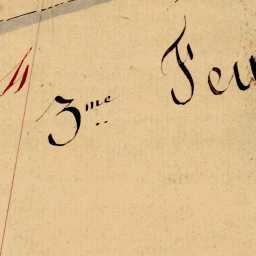 3me Feu